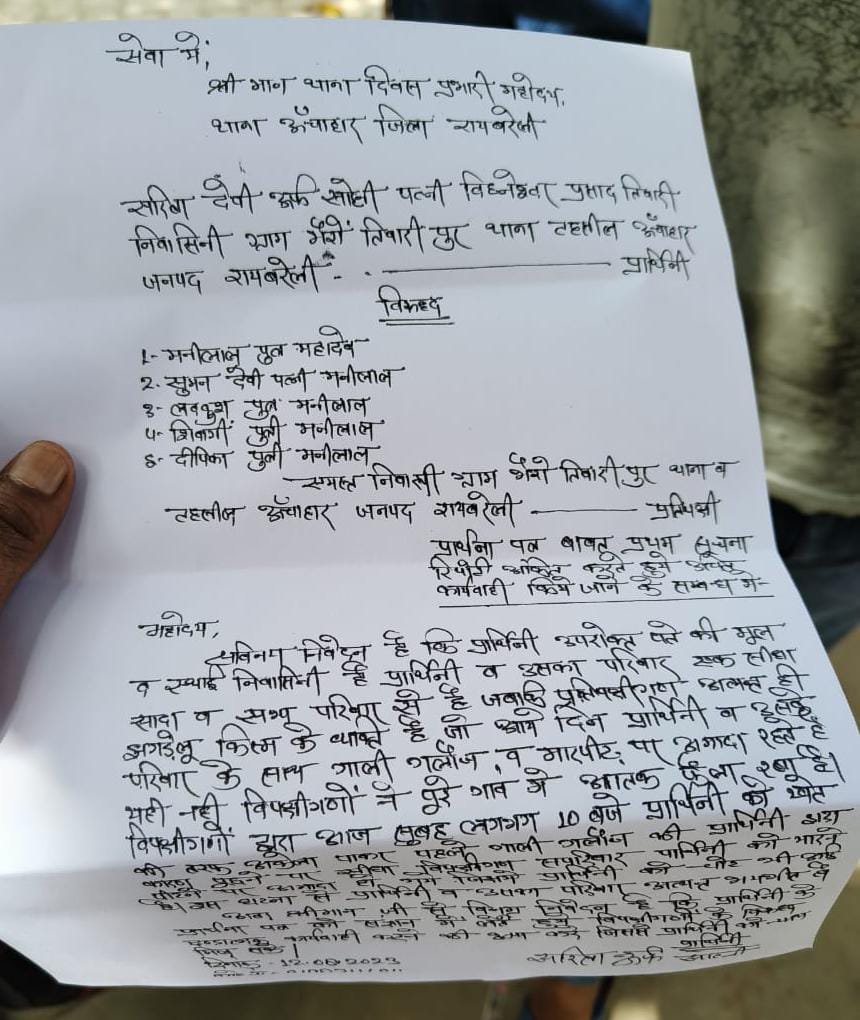 सेवा में,
श्री मान थाना दिवस प्रभारी महोदय,
थाना ऊँचाहार जिला रायबरेली
सरिता देवी उर्फ पत्नी विघ्नेश्वर प्रसाद तिवारी
निवासिनी ग्राम भैरों तिवारी पुर थाना तहसील ऊँचाहार
जनपद रायबरेली - . ——— प्रार्थिनी
विरूद्ध
1- मनीलाल पुत्र महादेव
2- सुमन देवी पत्नी मनीलाल
3- लवकुश पुत्र मनीलाल
4- शिवांगी पुत्री मनीलाल
5- दीपिका पुत्री मनीलाल
समस्त निवासी ग्राम भैरो तिवारी पुर थाना व
तहसील ऊँचाहार जनपद रायबरेली ——— प्रतिपक्षी
प्रार्थना पत्र बावत प्रथम सूचना
रिपोर्ट अंकित करते हुये उचित
कार्यवाही किये जाने के सम्बन्ध में-
महोदय,
सविनय निवेदन है कि प्रार्थिनी उपरोक्त पते की मूल
व स्थाई निवासिनी है प्रार्थिनी व उसका परिवार एक सीधा
सादा व सभ्य परिवार से है जबकि प्रतिपक्षीगण अत्यन्त ही
झगड़ेलू किस्म के व्यक्ति है जो आये दिन प्रार्थिनी व उसके
परिवार के साथ गाली गलौज, व मारपीट, पर अमादा रहते है
यही नही विपक्षीगणों ने पूरे गांव में आतंक फैला रखा है।
विपक्षीगणों द्वारा आज सुबह लगभग 10 बजे प्रार्थिनी को खेत
की तरफ पाकर पहले गाली गलौज की प्रार्थिनी द्वारा
कारण पूछने पर विपक्षीगण सपरिवार प्रार्थिनी को मारने
पर अमादा हो गये प्रार्थिनी को
है। इस घटना से प्रार्थिनी व उसका परिवार अत्यन्त भयभीत है
अतः श्रीमान जी से विनम्र निवेदन है कि प्रार्थिनी के
प्रार्थना पत्र को संज्ञान में लेते हुये विपक्षीगणों के विरूद्ध
कार्यवाही करने की कृपा करें जिससे प्रार्थिनी को न्याय
मिल सके।
प्रार्थिनी
दिनांक - 12.08.2023
सरिता उर्फ